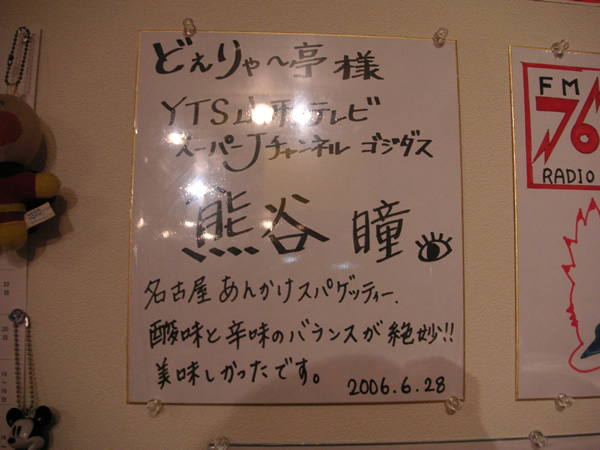 どえりゃ〜亭 様
YTS山形テレビ
スーパーJチャンネル ゴジダス
熊谷 瞳
名古屋あんかけスパゲッティー.
酸味と辛味のバランスが絶妙!!
美味しかったです。
2006.6.28
FM
76
RADIO